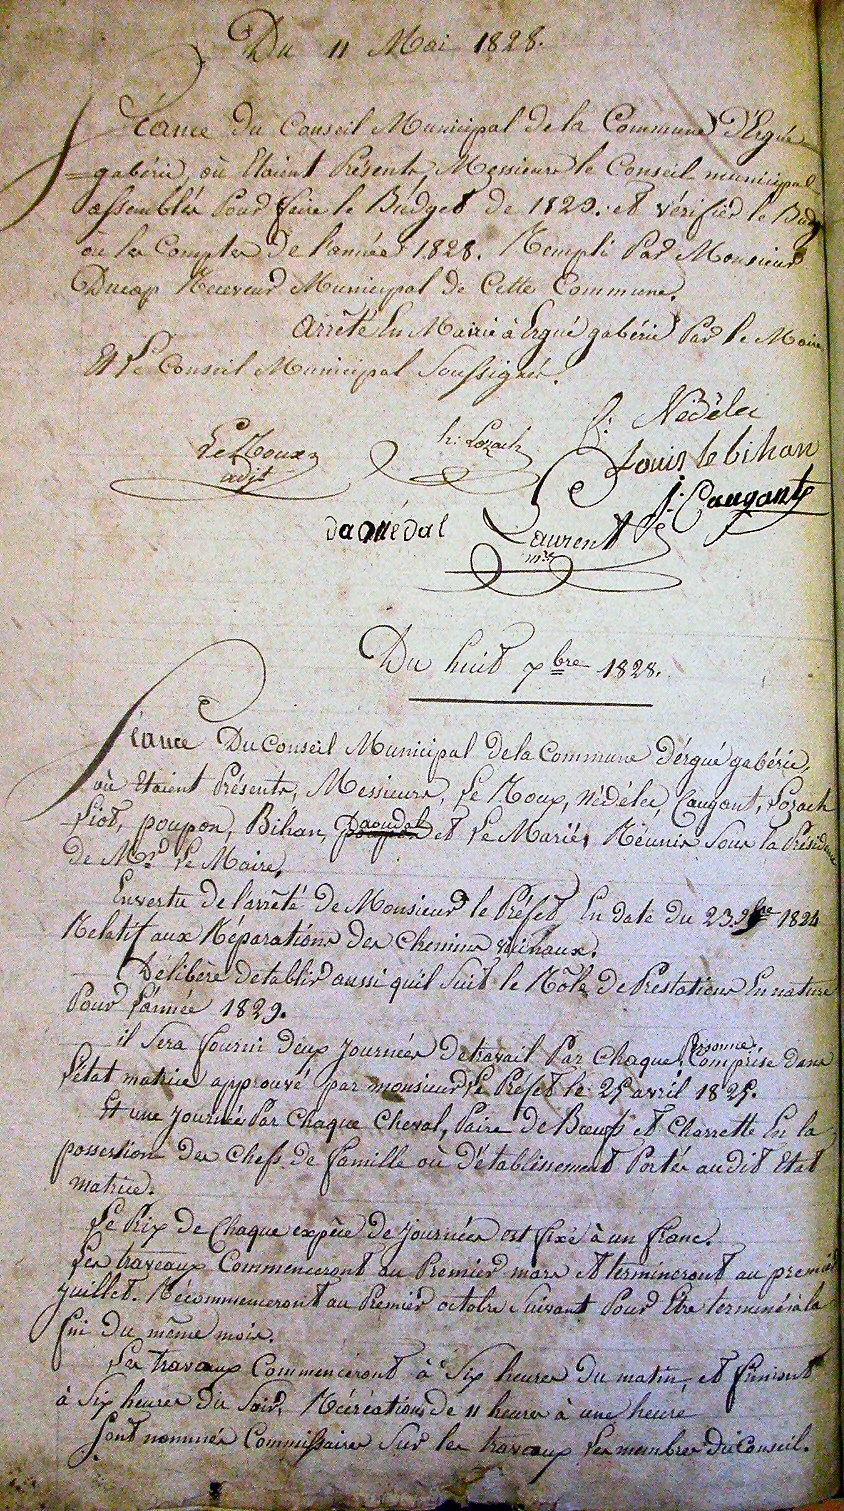 Du 11 Mai 1828.
Séance du Conseil Municipal de la Commune D'Ergué
=gabéric, où Etaient Présents, Messieurs le Conseil municipal
assemblés Pour faire le Budget de 1829. et vérifier le Budget
ou les Comptes de l'année 1828. Rempli Par Monsieur
Ducap Receveur Municipal de Cette Commune.
Arrêté En Mairie à Ergué gabéric Par le Maire
Et Le Conseil Municipal Soussigné.
f: Nédélec
Le Roux h: Lozach Louis le bihan
adjt j: Caugant
daouédal Laurent
mre
Du huit 7bre 1828.
Séance Du Conseil Municipal de la Commune d'érgué gabéric,
où Etaient Présents, Messieurs, Le Roux, Nédélec, Caugant, Lozach
Liot, poupon, Bihan, Daoudal et Le Marié, Réunis Sous la Présidence
de Mr Le Maire,
En vertu de l'arrêté de Monsieur le Préfet En date du 23. 9bre 1824
Relatif aux Réparations des Chemins vicinaux.
Délibère d'etablir aussi quil Suit le Rôle de Prestations En nature
Pour l'année 1829.
il Sera fourni deux journées de travail Par Chaque Personne Comprise dans
l'état matrice approuvé par monsieur Le Préfet le 25 avril 1825.
Et une journée Par Chaque Cheval, Paire de Bœufs et Charrette En la
possession des Chefs de famille où d'établissement Portés audit Etat
matrice.
Le Prix de Chaque expèce de journées est fixé à un franc.
Les traveaux Commenceront au Premier mars et termineront au premier
juillet. Récommenceront au Premier octobre Suivant Pour Etre terminés à la
fin du même mois.
Les travaux Commenceront à Six heures du matin et finiront
à Six heures du Soir, Récréation de 11 heures à une heure
Sont nommés Commissaires Sur les travaux Les membres du Conseil.